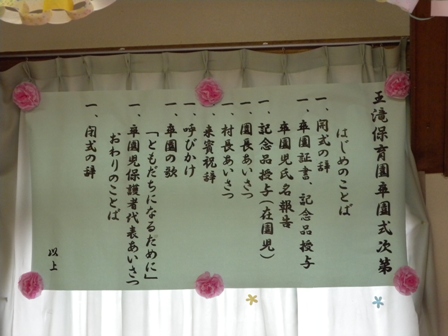 王滝保育園卒園式次第
はじめのことば
一、開式の辞
一、卒園証書、記念品授与
卒園児氏名報告
一、記念品授与(在園児)
一、園長あいさつ
一、村長あいさつ
一、来賓祝辞
一、呼びかけ
一、卒園の歌
「ともだちになるために」
一、卒園児保護者代表あいさつ
おわりのことば
一、閉式の辞
以上